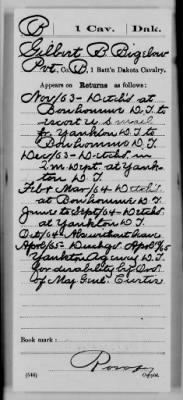 B | 1 Cav. | Dak.
Gilbert B Bigelow
Pvt., Co. B, 1 Batt'n Dakota Cavalry.
Appears on Returns as follows:
Nov/63 - Detch'd at
Bonhomme D.T. to
escort U S mail
fr Yankton D.T. to
Bonhomme D.T.
Dec/63 - Detch'd in
Q.M. Dept. at Yank-
ton D.T.
Feb & Mar/64 Detch'd
at Bonhomme D.T.
June to Sept/64 - Detch'd
at Yankton D.T.
Oct/64 - Abs without leave
Apr/65 - Dischgd. Apr
Yankton Agency D.T.
for disability by Ord.
of Maj Genl. Curtis
Book mark:
(546) Copyist.